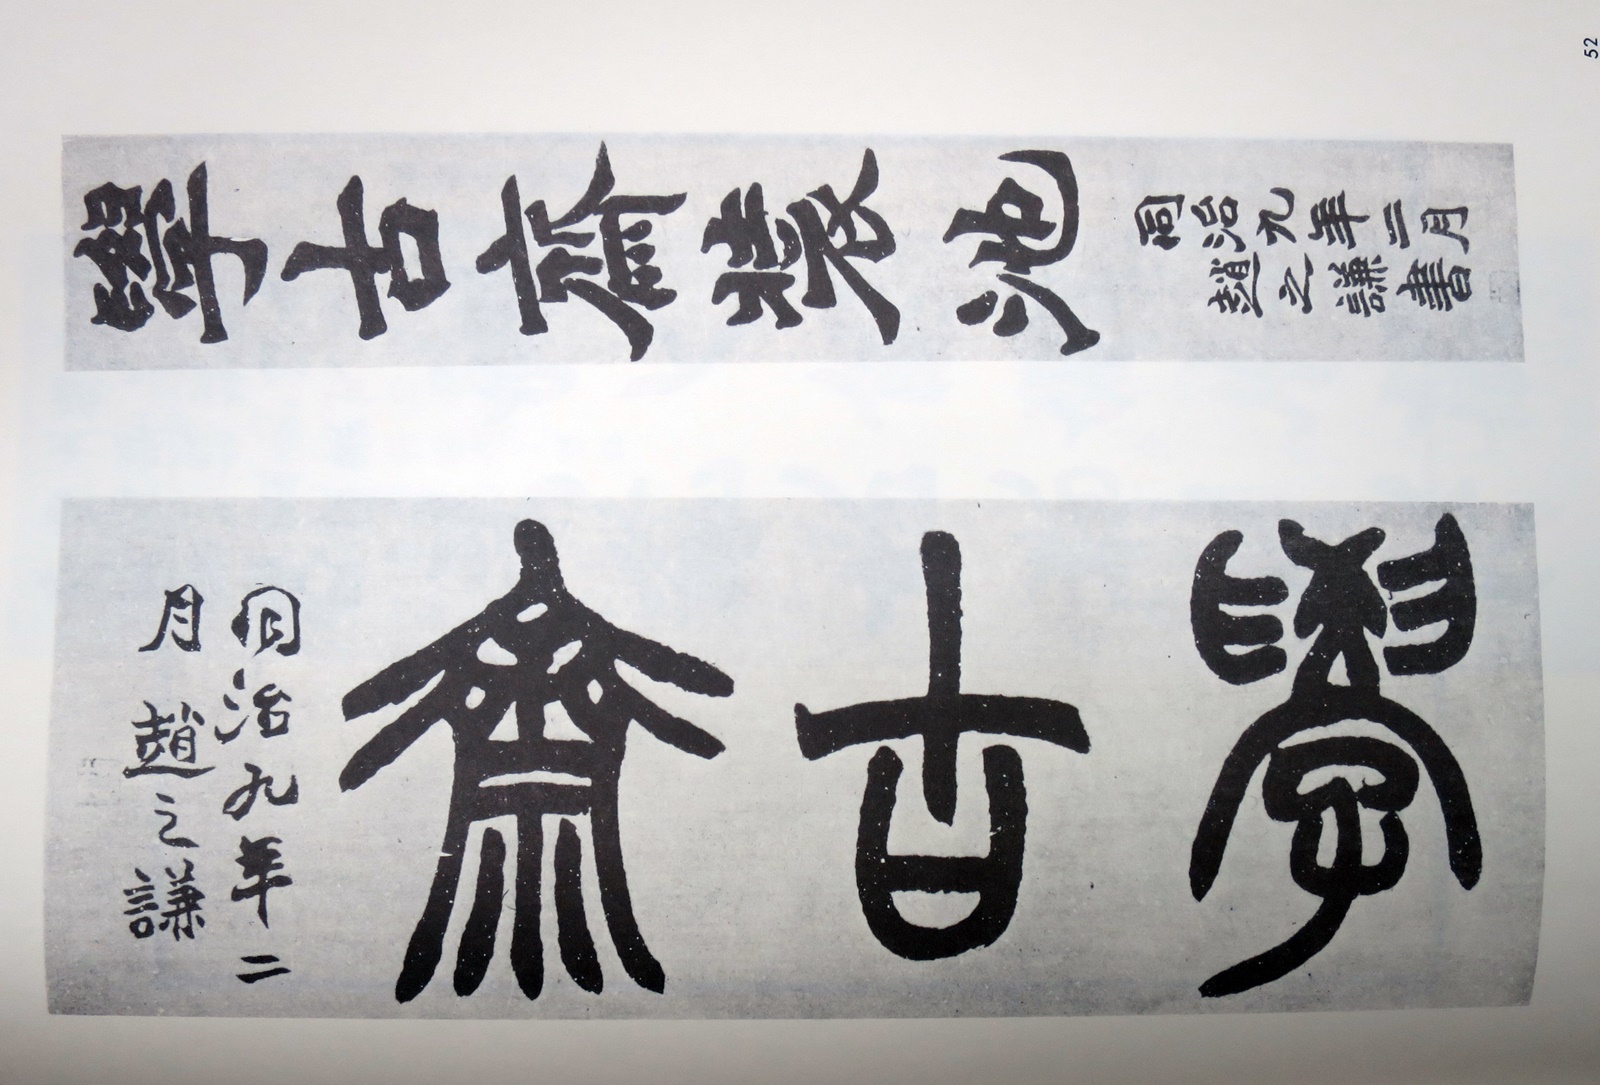 52
學古齋裝池
同治九年二月
趙之謙書
學古齋
同治九年二
月 趙之謙